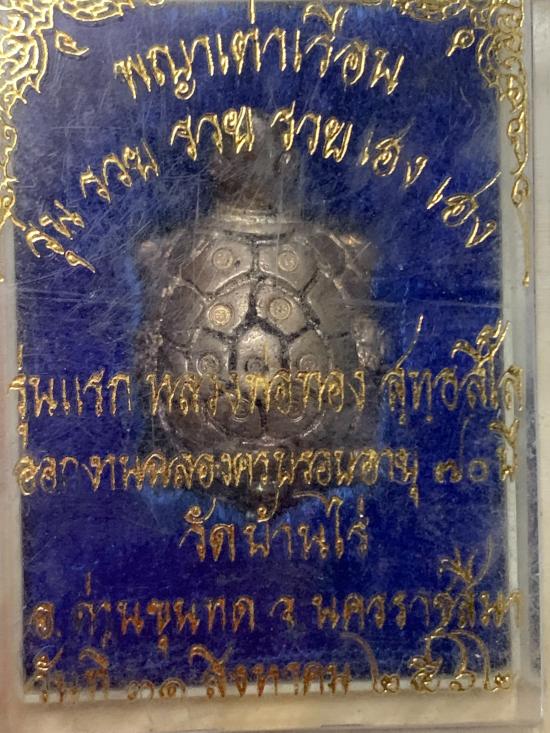 พญาเต่าเรือน
รุ่น รวย รวย รวย เฮง เฮง
รุ่นแรก หลวงพ่อทอง สุทธสีโล
ออกงานฉลองครบรอบอายุ ๗๐ ปี
วัดบ้านไร่
อ. ด่านขุนทด จ. นครราชสีมา
วันที่ ๓๑ สิงหาคม ๒๕๖๒